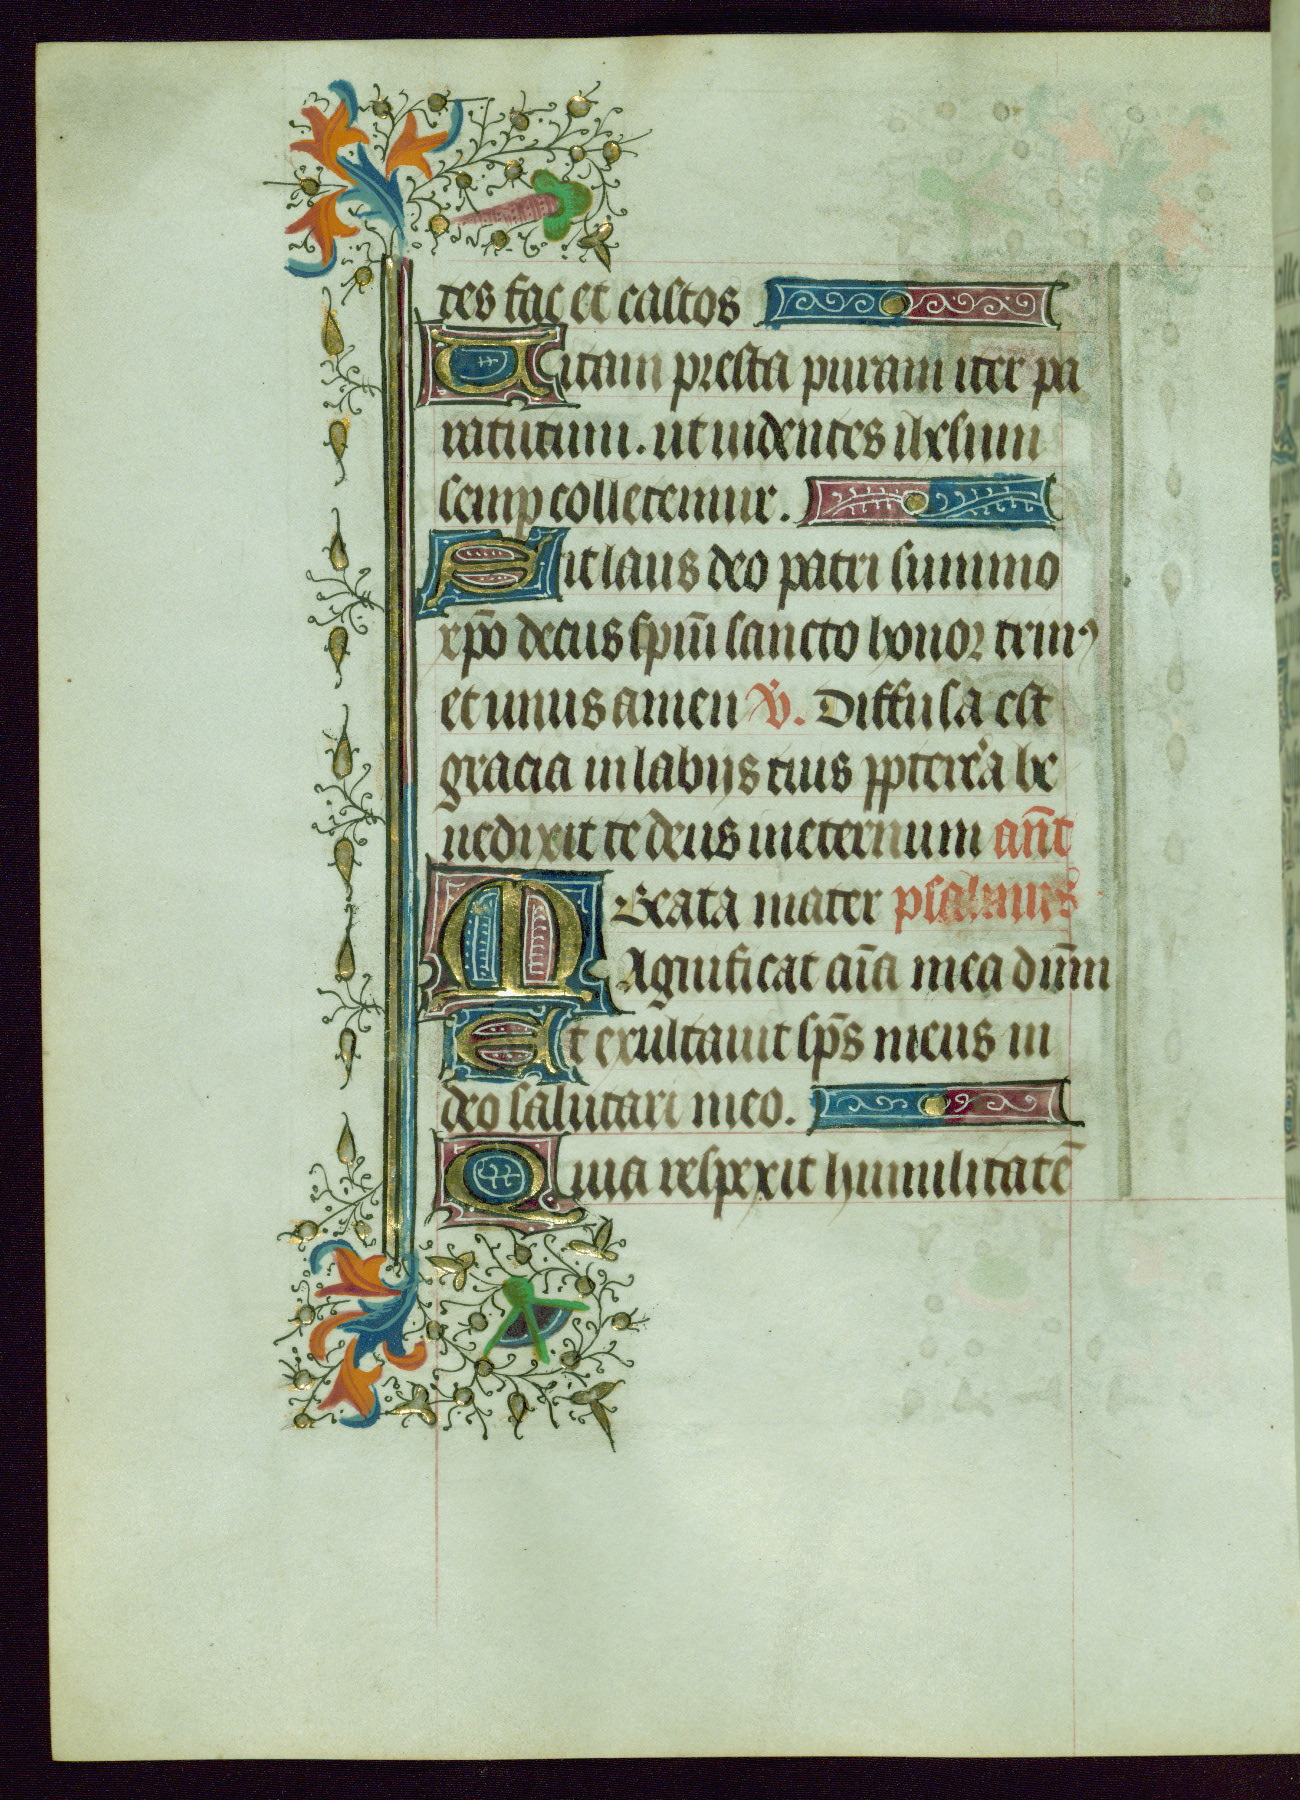 tes fac et castos
Vitam presta puram iter pa
ra tutum. ut uidentes ihesum
semp colletemur.
Sit laus deo patri summo
xpo decus spiritui sancto honor trin9
et unus amen V. Diffusa est
gracia in labijs tuis ppterea be
nedixit te deus in eternum ant
Beata mater psalmus
Magnificat aīa mea dūm
Et exultauit sps meus in
deo salutari meo.
Quia respexit humilitatē